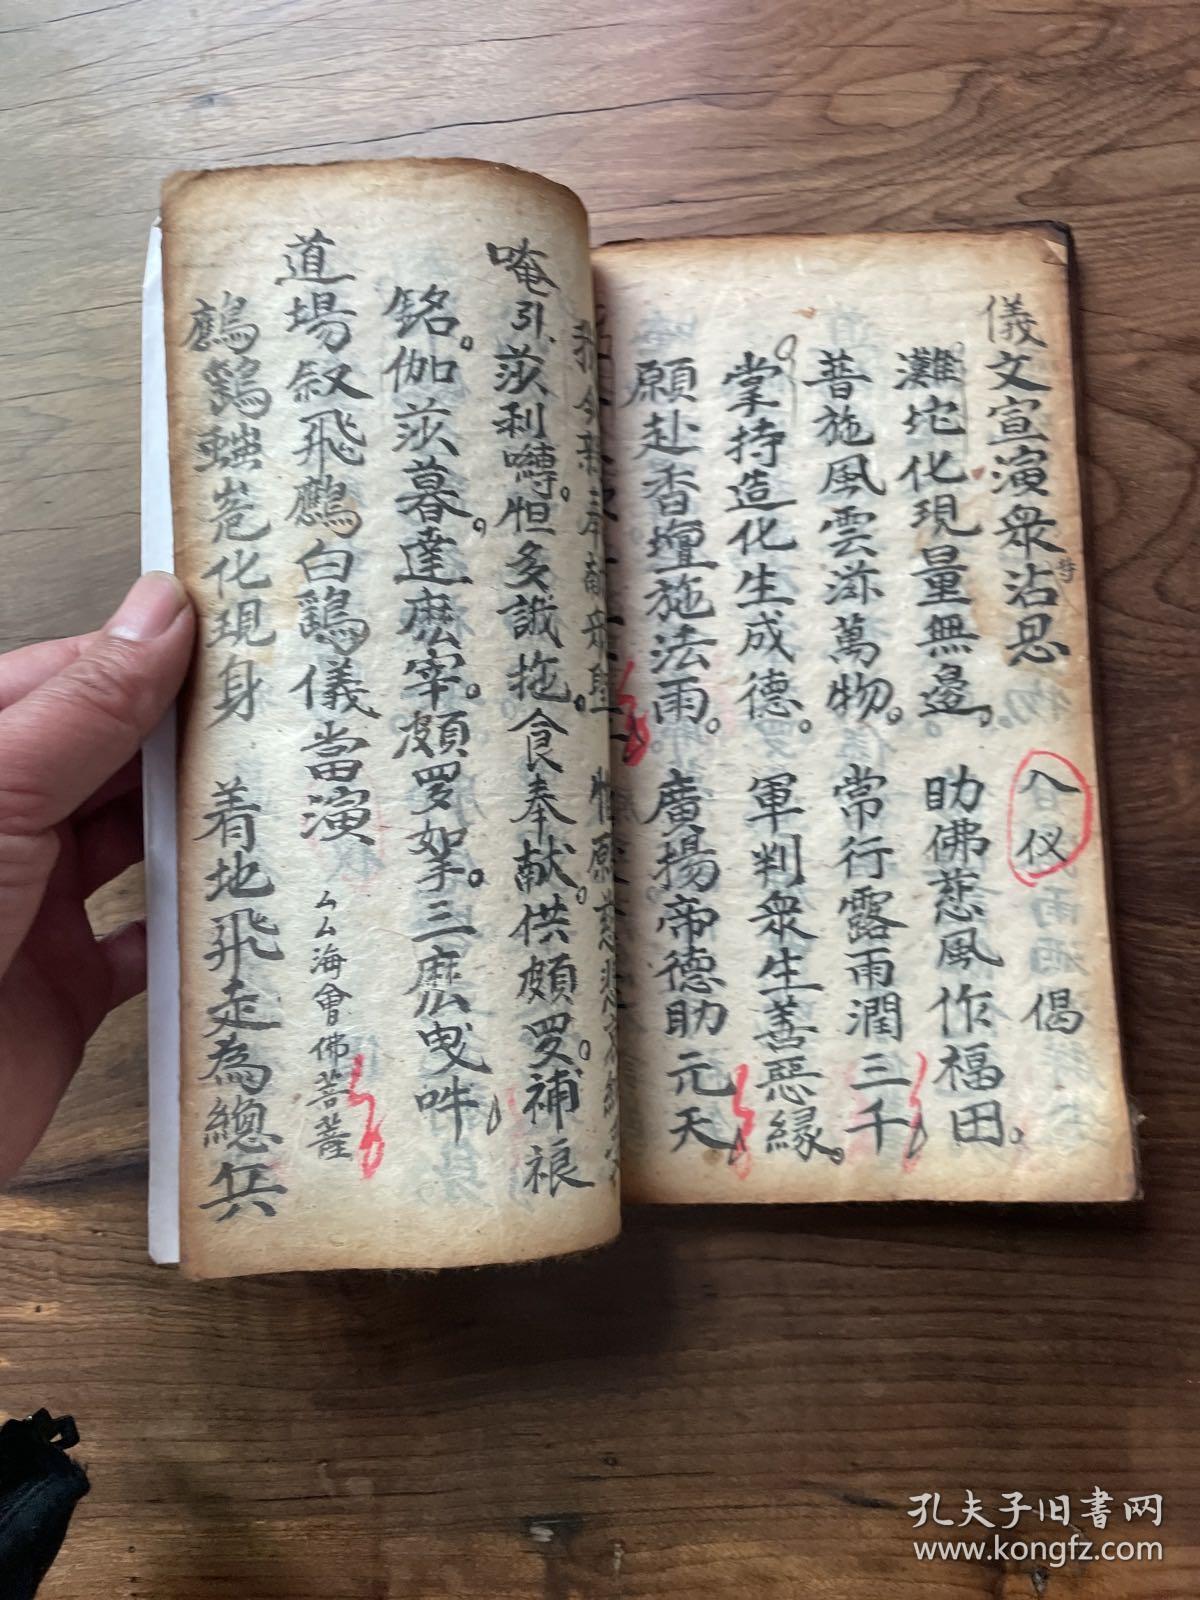 儀文宣演衆沾恩 偈
入仪
灘坨化現量無邊。助佛慈風作福田。
普施風雲滋萬物。常行露雨潤三千
掌持造化生成德。軍判衆生善惡緣。
願赴香壇施法雨。廣揚帝德助元天
唵引莎利嚩。怛多誐拖。食奉献。供頗罗。補裉
銘。伽莎暮。達麽宰。頗罗如拏。三麽曳吽
道場叙飛鷹白鷂儀當演 厶厶海會佛菩薩
鷹鷂 化現身 着地飛走為總兵
孔夫子旧書网
www.kongfz.com